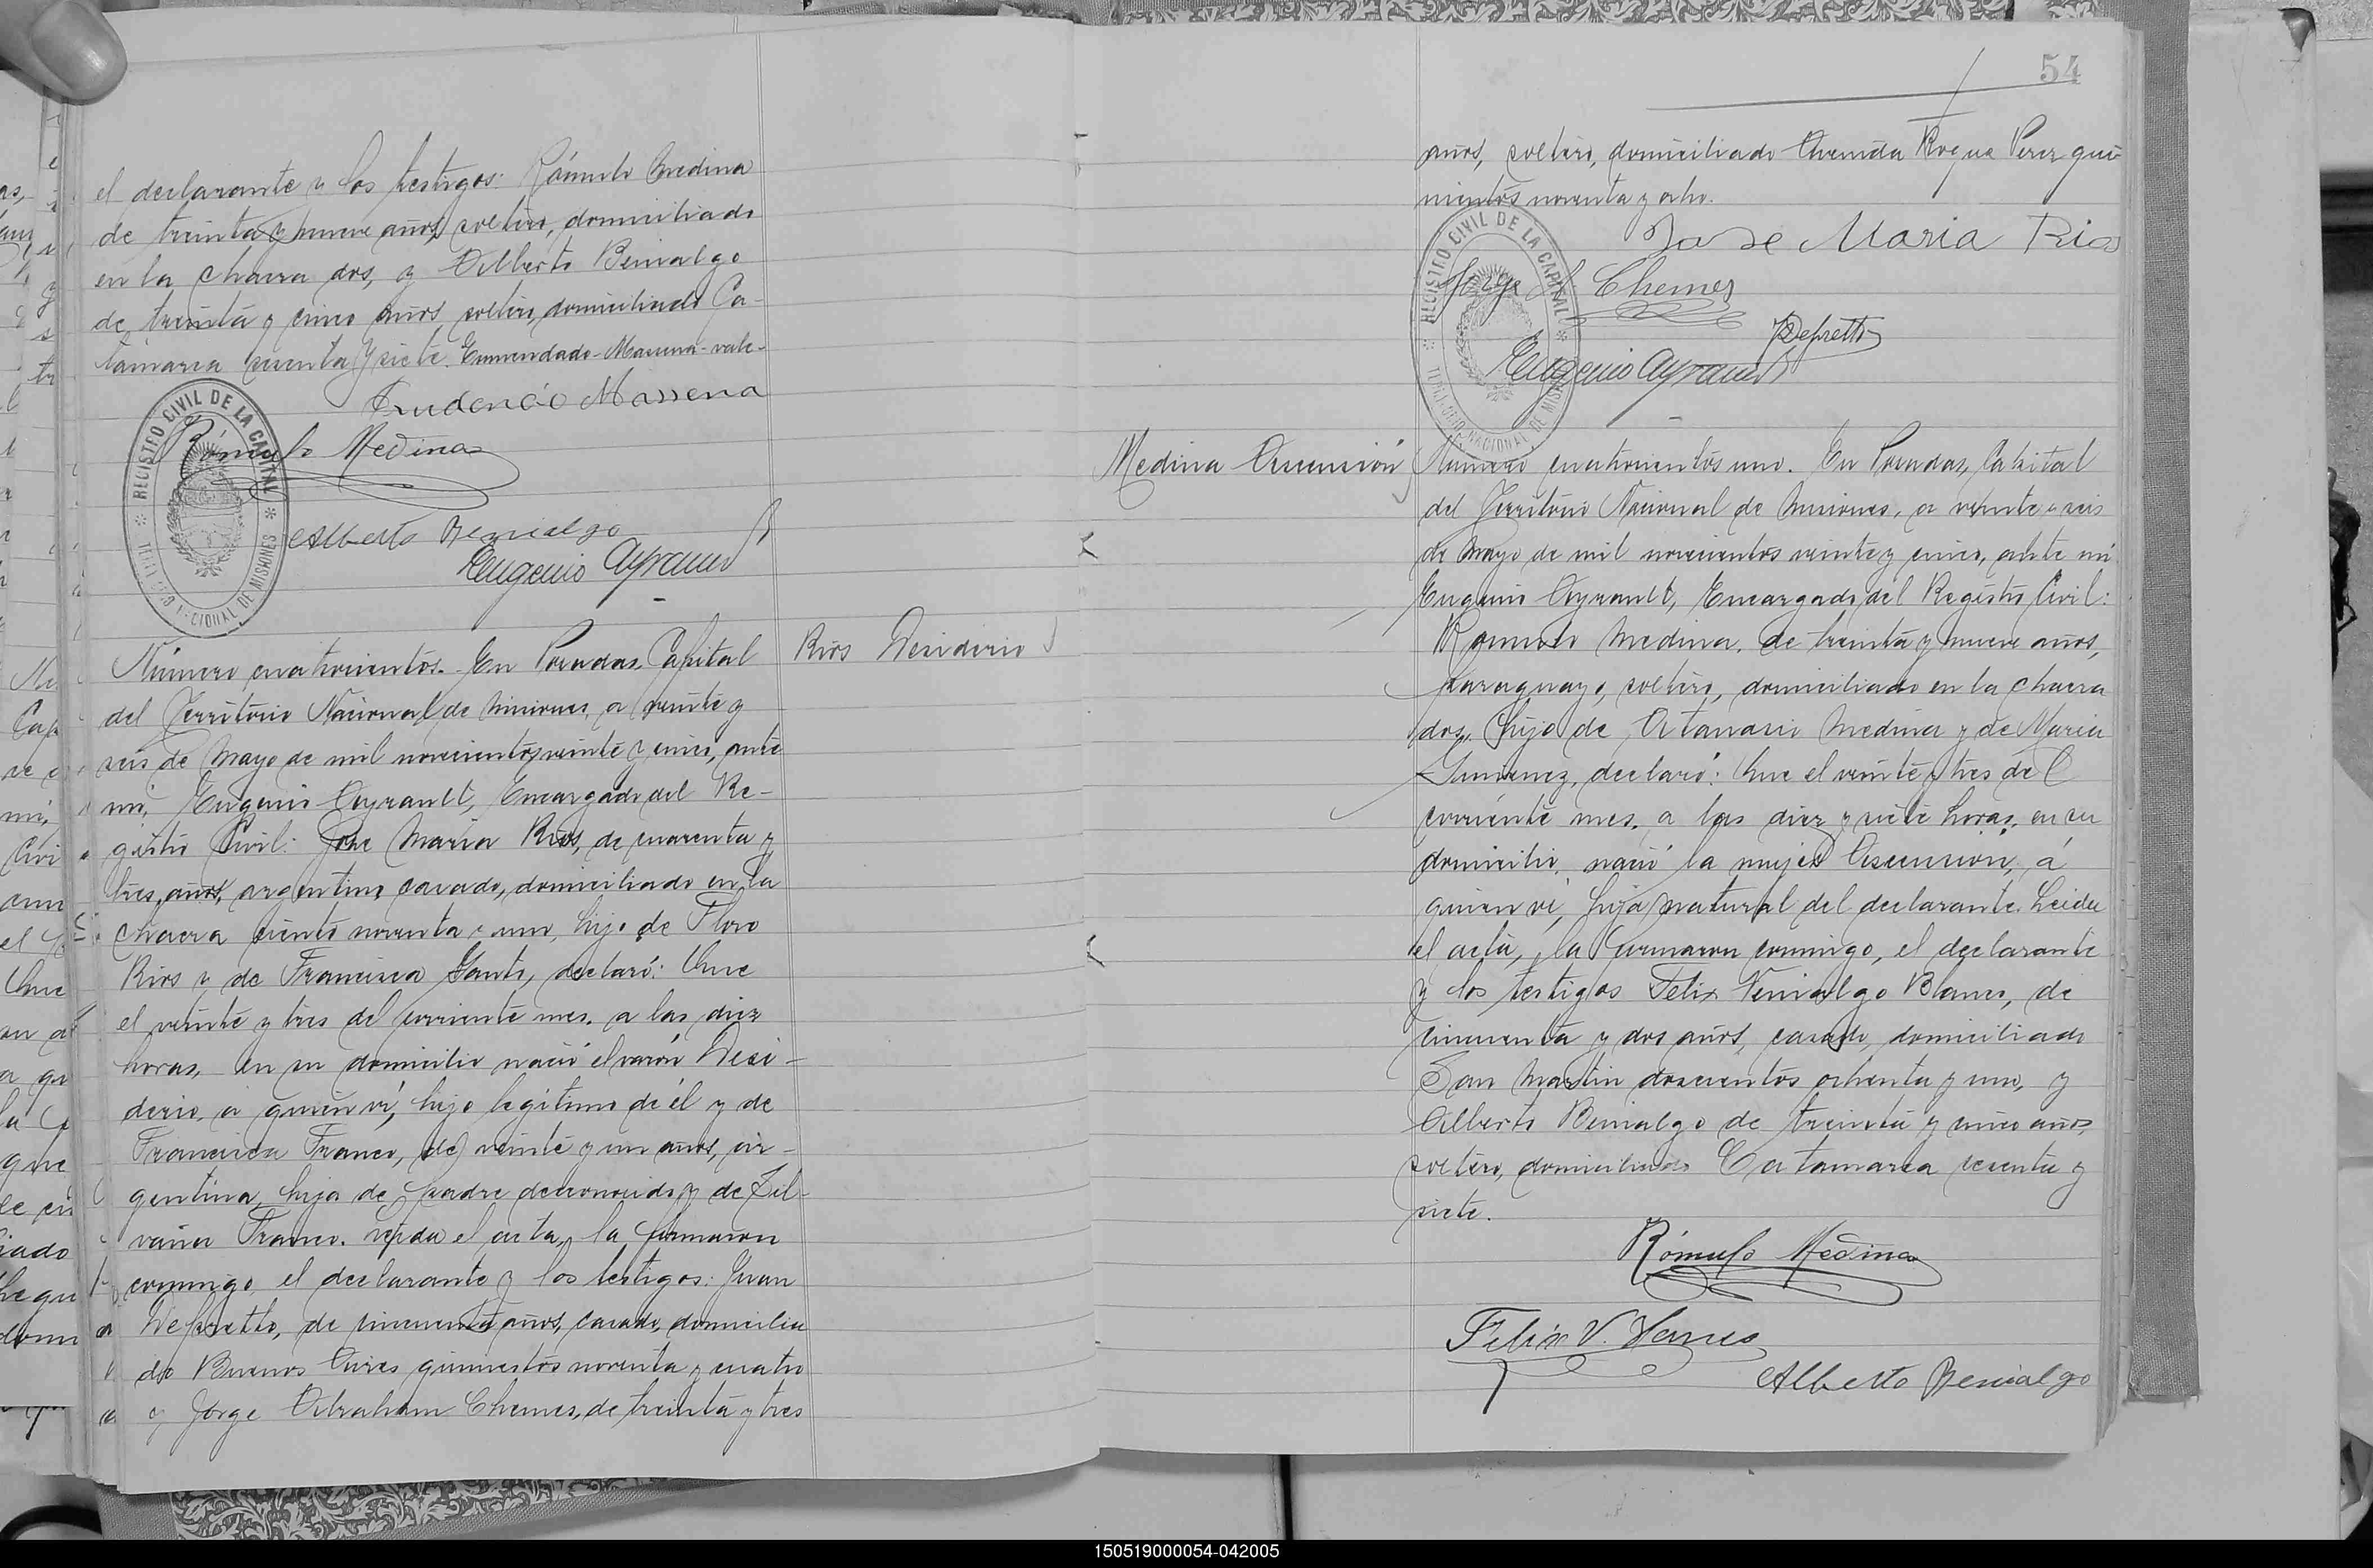 el declarante y los testigos: Rómulo Medina
de treinta y nueve años, soltero, domiciliado
en la chacra dos, y Alberto Benialgo
de treinta y cinco años, soltero, domiciliado Ca-
tamarca sesenta y siete. Enmendado-Massena-vale-
Prudencio Massena
Rómulo Medina
REGISTRO CIVIL DE LA CAPITAL
NACIONAL DE MISIONES
Alberto Benialgo
Eugenio Ayrault
Número cuatrocientos. En Posadas, Capital
del Territorio Nacional de Misiones, a veinte y
seis de Mayo de mil novecientos veinte y cinco, ante
mí, Eugenio Ayrault, Encargado del Re-
gistro Civil: José María Rios, de cuarenta y
tres años, argentino, casado, domiciliado en la
chacra ciento noventa y uno, hijo de Floro
Rios y de Francisca, declaró: Que
el veinte y tres del corriente mes, a las diez
horas, en su domicilio nació el varón Desi-
derio, a quien ví, hijo legítimo de él y de
Francisca Franco, de veinte y un años, ar-
gentina, hija de padre desconocido y de Sil-
varia Franco. Leída el acta, la firmaron
conmigo, el declarante y los testigos: Juan
Depretto, de cincuenta años, casado, domicilia
do Buenos Aires quinientos noventa y cuatro
y Jorge Abraham Chemes, de treinta y tres
Rios Desiderio
54
años, soltero, domiciliado Avenida Roque Perez qui-
nientos noventa y ocho.
José Maria Rios
Jorge Chemes
JDepretto
Eugenio Ayrault
REGISTRO CIVIL DE LA CAPITAL
TERRITORIO NACIONAL DE MISIONES
Medina Ascensión
Número cuatrocientos uno. En Posadas, Capital
del Territorio Nacional de Misiones, a veinte y seis
de Mayo de mil novecientos veinte y cinco, ante mí
Eugenio Ayrault, Encargado del Registro Civil:
Romulo Medina, de treinta y nueve años,
paraguayo, soltero, domiciliado en la chacra
dos, hijo de Atanasio Medina y de Maria
Gimenez, declaró: Que el veinte y tres del
corriente mes, a las diez y siete horas, en su
domicilio, nació la mujer Ascension, á
quien ví, hija natural del declarante. Leida
el acta, la firmaron conmigo, el declarante
y los testigos Felix Venialgo Blanco, de
cincuenta y dos años, casado, domiciliado
San Martin doscientos ochenta y uno, y
Alberto Benialgo de treinta y cinco años,
soltero, domiciliado Catamarca sesenta y
siete.
Rómulo Medina
Felix V. Blanco
Alberto Benialgo
150519000054-042005